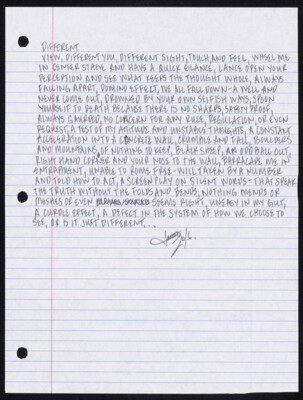 DIFFERENT
VIEW, DIFFERENT YOU, DIFFERENT SIGHT, TOUCH, AND FEEL, WHEEL ME
IN CORNER STAGE AND HAVE A QUICK GLANCE, LANCE OPEN YOUR
PERCEPTION AND SEE WHAT KEEPS THE THOUGHT WHOLE, ALWAYS
FALLING APART, DOMINO EFFECT, WE ALL FALL DOWN - A WELL AND
NEVER COME OUT, DROWNED BY YOUR OWN SELFISH WAYS, SPOON
YOURSELF TO DEATH BECAUSE THERE IS NO SHARPS, SAFETY PROOF,
ALWAYS GAURDED, NO CONCERN FOR ANY RULE, REGULATION, OR EVEN
REQUEST, A TEST OF MY ATTITUDE AND UNSTABLE THOUGHTS, A CONSTANT
ACCELERATION INTO A CONCRETE WALL, CRUMBLE AND FALL, BOULDERS
AND MOUNTAINS, OF NOTHING TO KEEP, BLACK SHEEP, AM ODD BALL OUT,
RIGHT HAND CORNER AND YOUR NOSE TO THE WALL, BARRACADE ME IN
ENTRAPMENT, UNABLE TO ROAM FREE - WILL TAKEN BY A NUMBER
AND TOLD HOW TO ACT, A SCREEN PLAY ON SILENT WORDS - THAT SPEAK
THE TRUTH WITHOUT THE FOLDS AND BENDS, NOTHING MENDS OR
MESHES OR EVEN SEEMS RIGHT, UNEASY IN MY GUT,
A CURDLE EFFECT, A DEFECT IN THE SYSTEM OF HOW WE CHOOSE TO
SEE, OR IS IT JUST DIFFERENT...